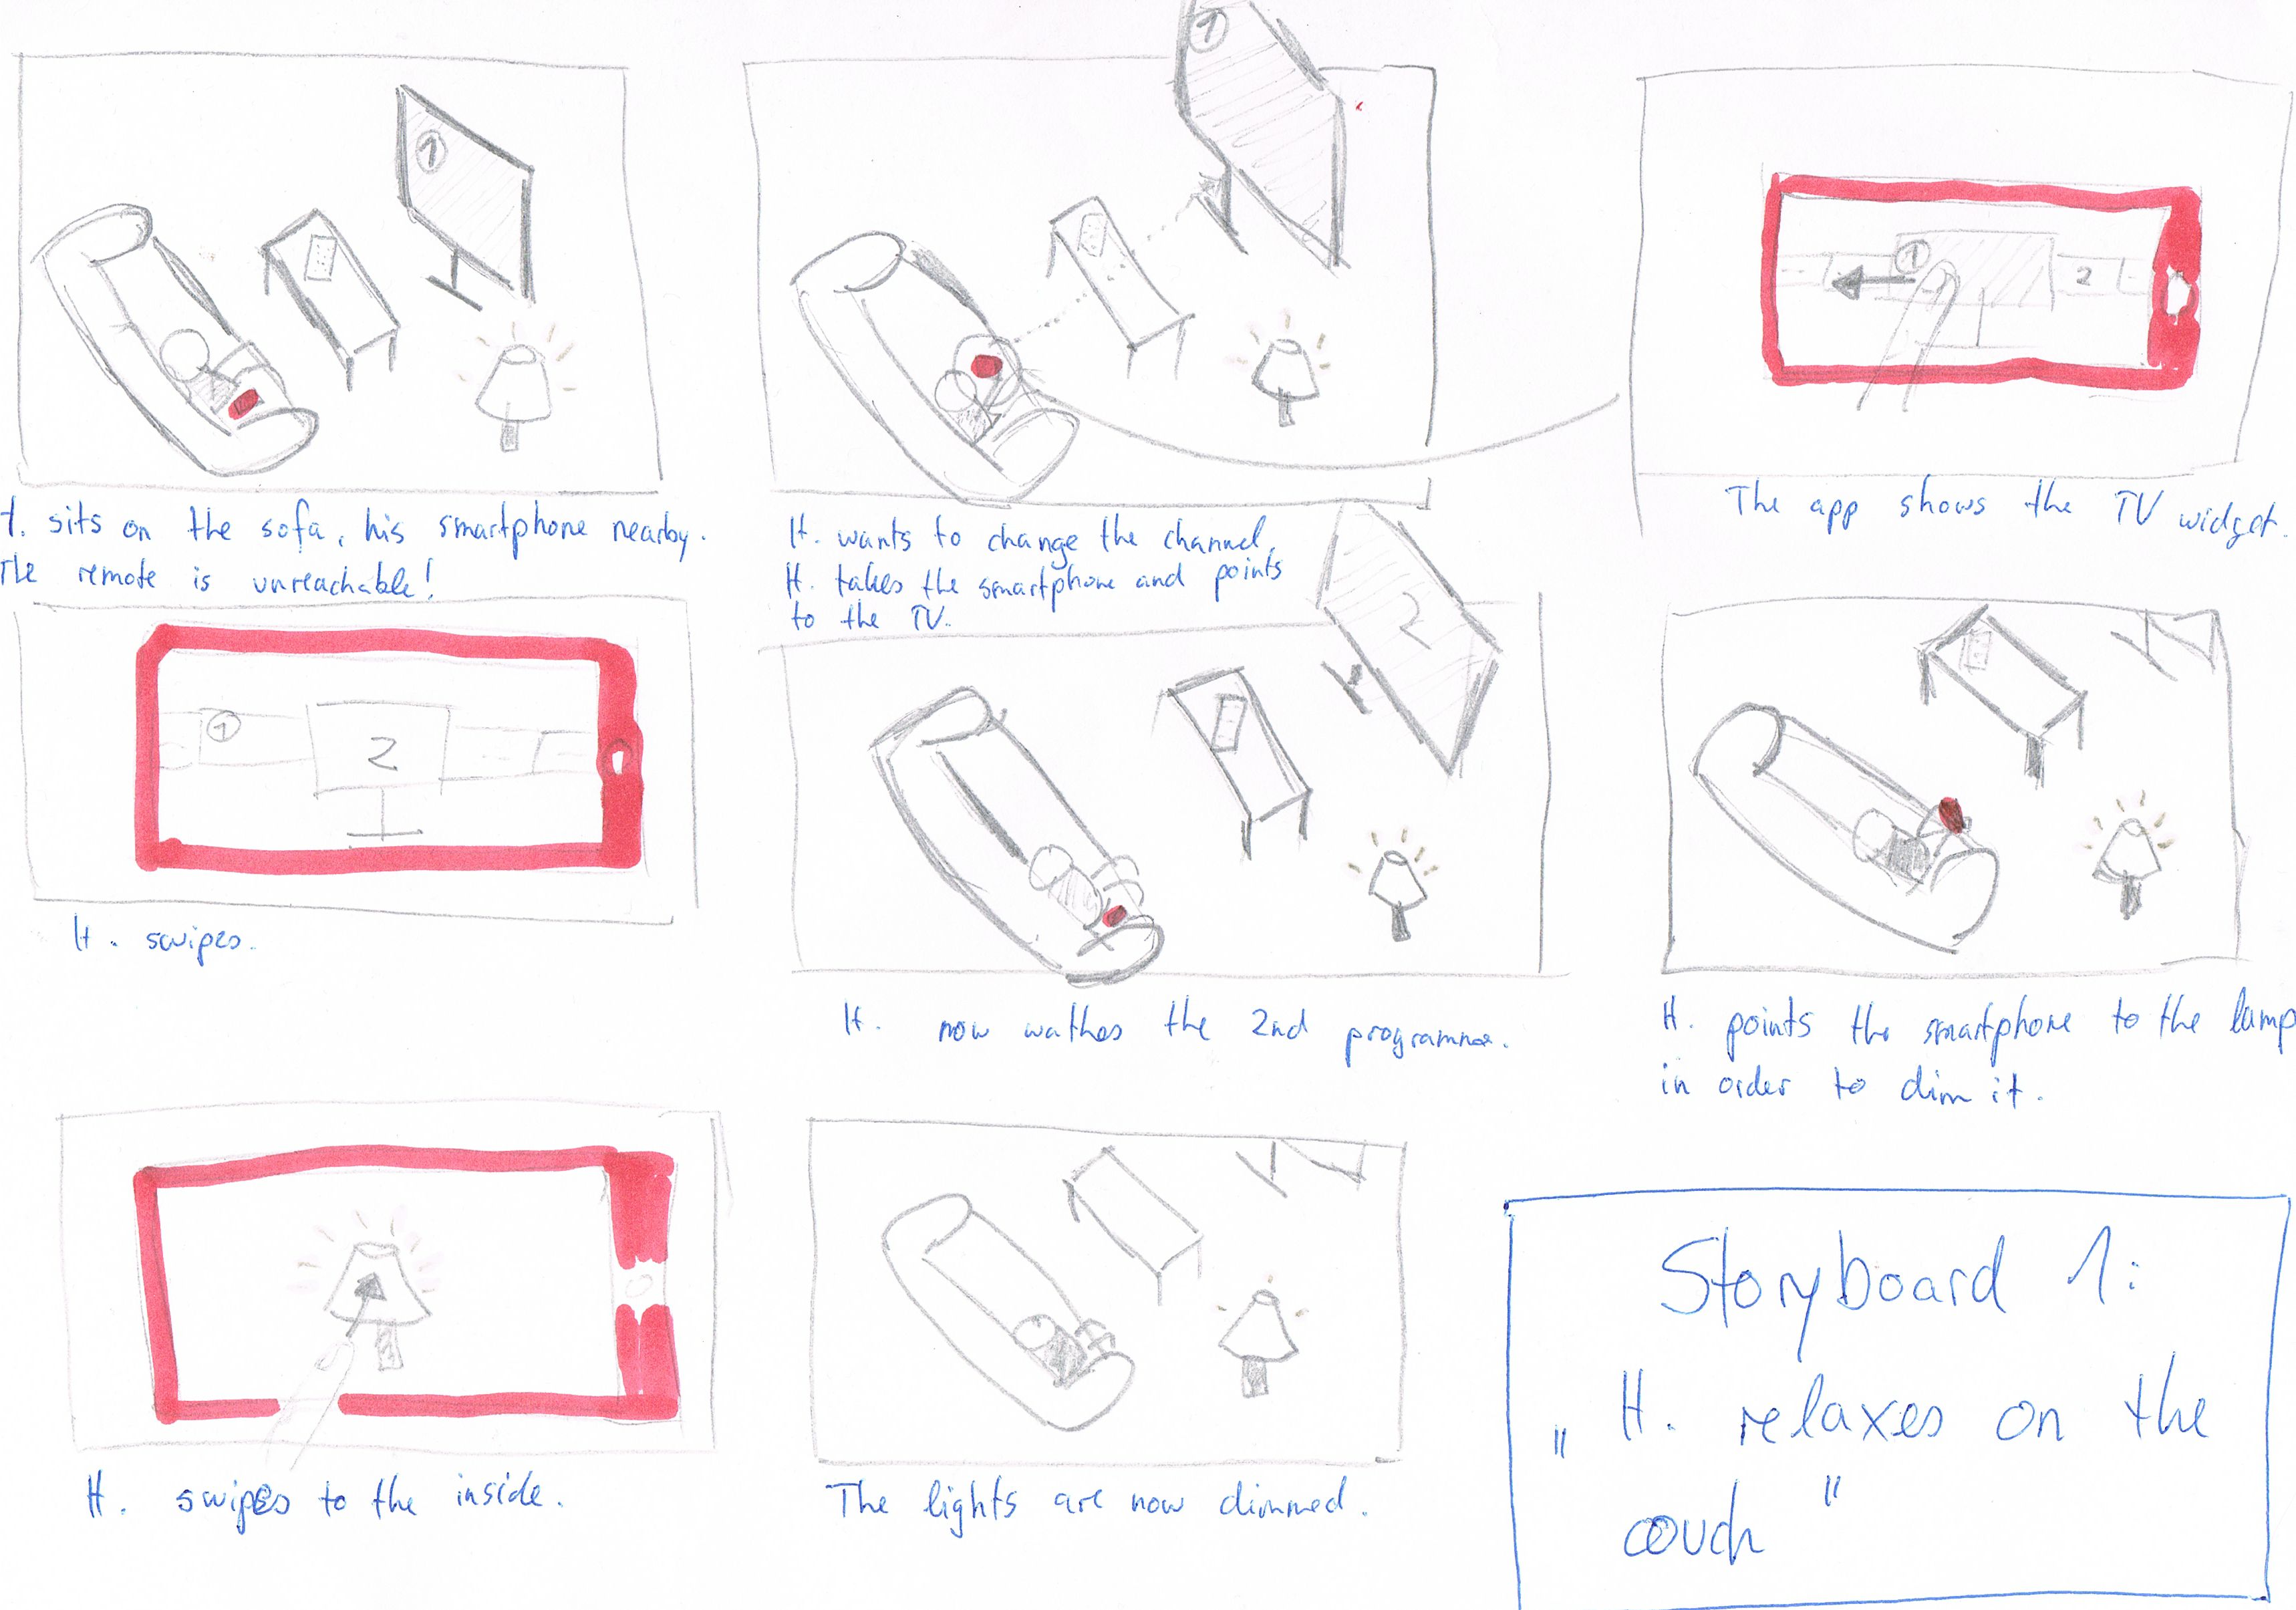 1
H. sits on the sofa, his smartphone nearby.
The remote is unreachable!
1
H. wants to change the channel.
H. takes the smartphone and points
to the TV.
1 2
The app shows the TV widget.
1 2
H. swipes.
2
H. now wathes the 2nd programme.
H. points the smartphone to the lamp
in order to dim it.
H. swipes to the inside.
The lights are now dimmed.
Storyboard 1:
"H. relaxes on the
couch"